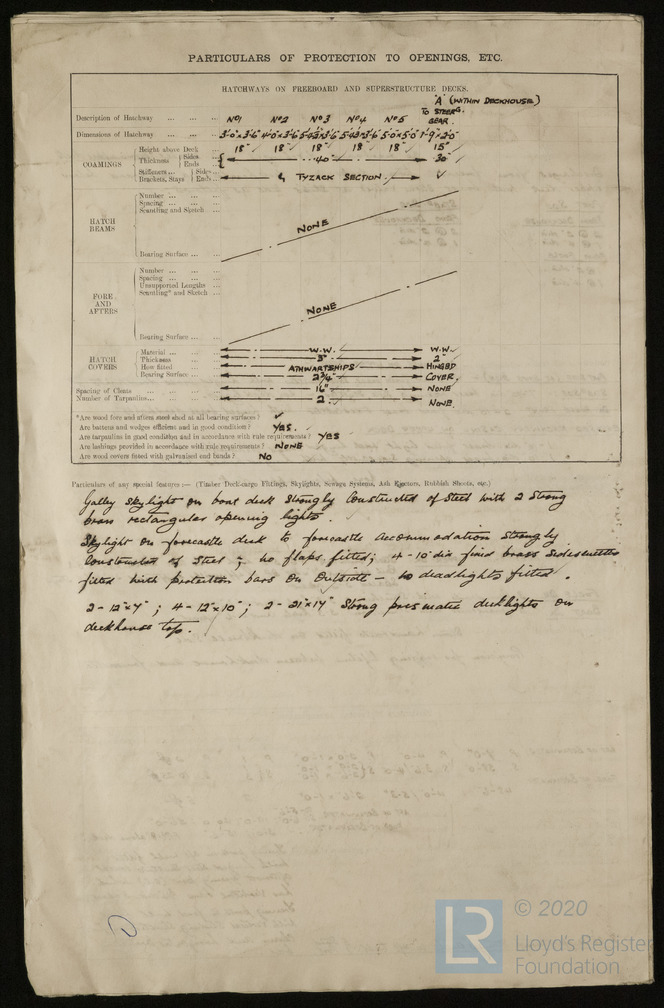 PARTICULARS OF PROTECTION TO OPENINGS, ETC.
HATCHWAYS ON FREEBOARD AND SUPERSTRUCTURE DECKS.
"A" (WITHIN DECKHOUSE)
Description of Hatchway ... ... ... No1 No2 No3 No4 No5 TO STEERG. GEAR.
Dimensions of Hatchway ... ... ... 3'0"x3'6" 4'0"x3'6" 5'0"x5'0" 1'-9"x2'0"
COAMINGS
Height above Deck ... 18" 18" 18" 18" 18" 15"
Thickness Sides Ends .40" .30"
Stiffeners ... Sides
Brackets, Stays Ends TYZACK SECTION.
HATCH BEAMS
Number ... ... ...
Spacing ... ... ...
Scantling and Sketch ...
NONE
Bearing Surface ... ...
FORE AND AFTERS
Number ... ... ...
Spacing ... ... ...
Unsupported Lengths ...
Scantling* and Sketch ...
NONE
Bearing Surface ... ...
HATCH COVERS
Material ... ... W.W. W.W.
Thickness 3" 2"
How fitted ATHWARTSHIPS HINGED
Bearing Surface ... 2 3/4" COVER.
Spacing of Cleats ... ... ... 16" NONE
Number of Tarpaulins... ... ... 2 NONE.
*Are wood fore and afters steel shod at all bearing surfaces?
Are battens and wedges efficient and in good condition? YES.
Are tarpaulins in good condition and in accordance with rule requirements? YES
Are lashings provided in accordance with rule requirements? NONE
Are wood covers fitted with galvanised end bands? NO
Particulars of any special features:— (Timber Deck-cargo Fittings, Skylights, Sewage Systems, Ash Ejectors, Rubbish Shoots, etc.)
Galley skylight on boat deck strongly constructed of steel with 2 strong
brass rectangular opening lights.
Skylight on forecastle deck to forecastle accommodation strongly
constructed of steel; no flaps fitted; 4-10" dia fixed brass sidescuttles
fitted with protection bars on outside - no deadlights fitted.
2-12"x7"; 4-12"x10"; 2-21"x17" strong prismatic decklights on
deckhouse top.
LR
© 2020
Lloyd's Register
Foundation